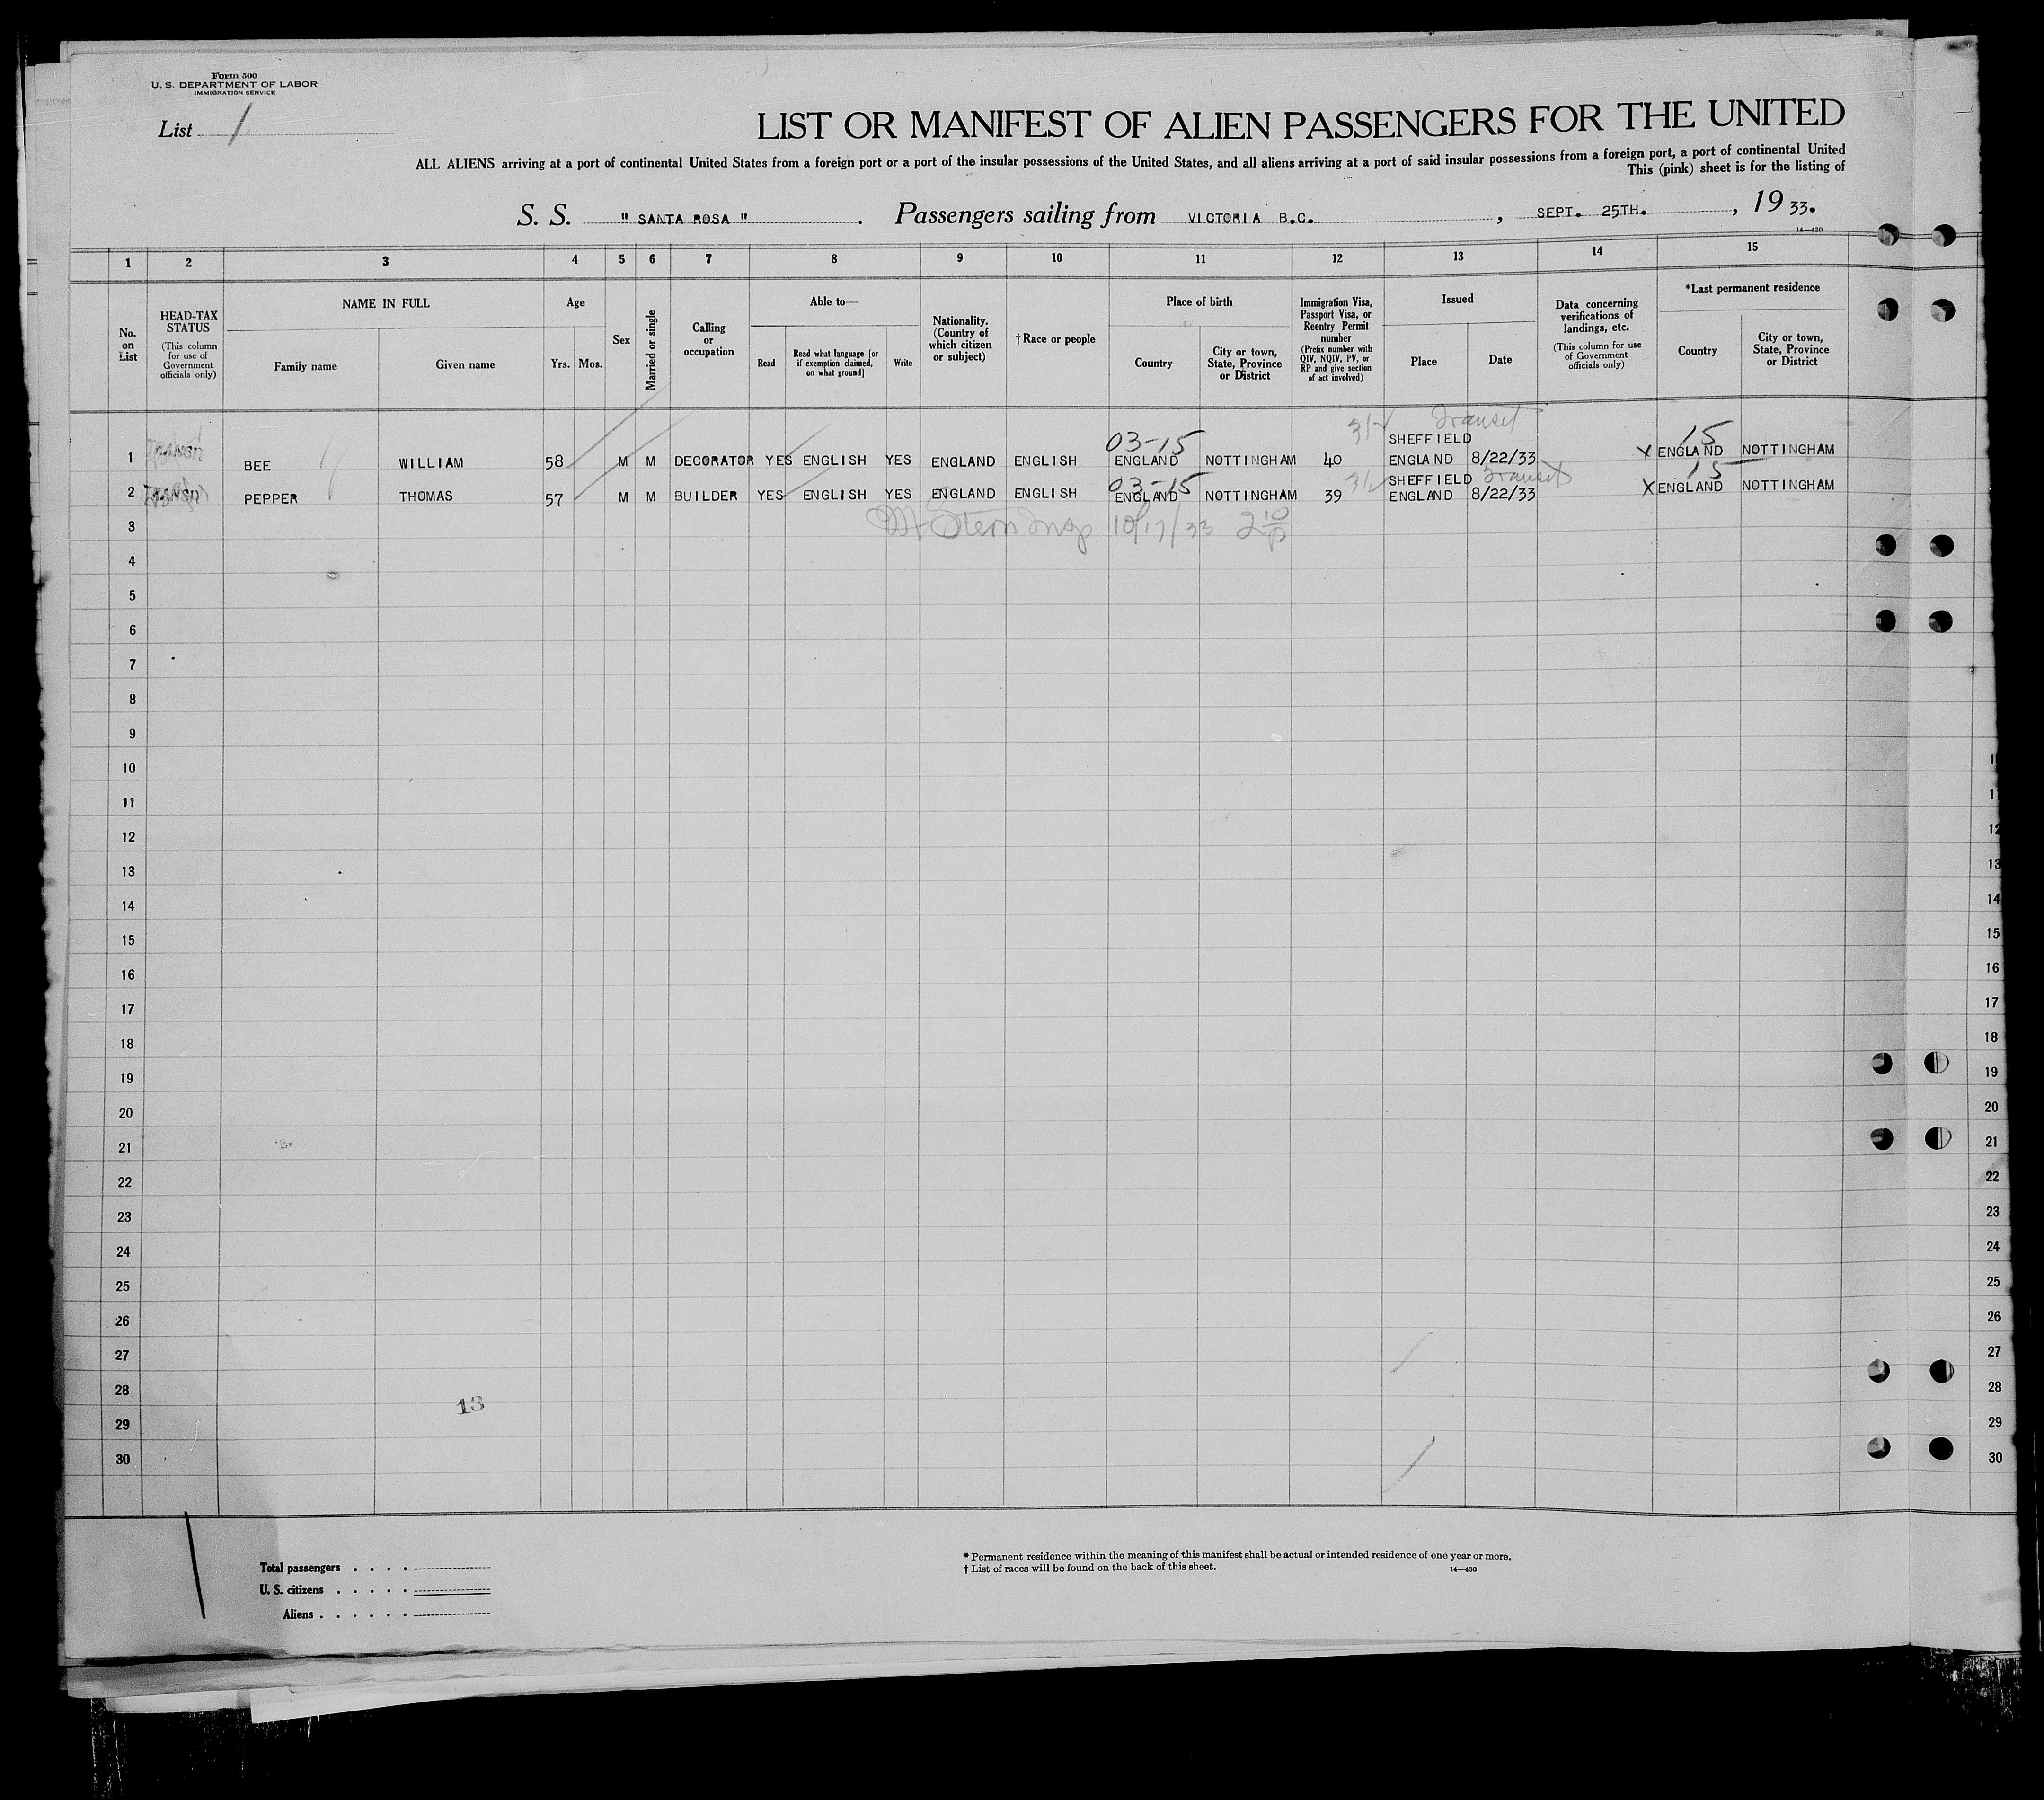 Form 500
U. S. DEPARTMENT OF LABOR
IMMIGRATION SERVICE
List 1
LIST OR MANIFEST OF ALIEN PASSENGERS FOR THE UNITED
ALL ALIENS arriving at a port of continental United States from a foreign port or a port of the insular possessions of the United States, and all aliens arriving at a port of said insular possessions from a foreign port, a port of continental United
This (pink) sheet is for the listing of
S. S. "SANTA ROSA". Passengers sailing from VICTORIA B.C., SEPT. 25TH., 1933.
14—430
1 2 3 4 5 6 7 8 9 10 11 12 13 14 15
No. on List
HEAD-TAX STATUS (This column for use of Government officials only)
NAME IN FULL
Family name Given name
Age
Yrs. Mos.
Sex
Married or single
Calling or occupation
Able to—
Read Read what language [or if exemption claimed, on what ground] Write
Nationality. (Country of which citizen or subject)
† Race or people
Place of birth
Country City or town, State, Province or District
Immigration Visa, Passport Visa, or Reentry Permit number (Prefix number with QIV, NQIV, PV, or RP and give section of act involved)
Issued
Place Date
Data concerning verifications of landings, etc. (This column for use of Government officials only)
*Last permanent residence
Country City or town, State, Province or District
Transit
03-15 SHEFFIELD 15
1 BEE WILLIAM 58 M M DECORATOR YES ENGLISH YES ENGLAND ENGLISH ENGLAND NOTTINGHAM 40 ENGLAND 8/22/33 X ENGLAND NOTTINGHAM
03-15 SHEFFIELD Transit 15
2 PEPPER THOMAS 57 M M BUILDER YES ENGLISH YES ENGLAND ENGLISH ENGLAND NOTTINGHAM 39 ENGLAND 8/22/33 X ENGLAND NOTTINGHAM
3 Stern Insp 10/17/33 2 10/P
4
5
6
7
8
9
10
11
12
13 13
14 14
15 15
16 16
17 17
18 18
19 19
20 20
21 21
22 22
23 23
24 24
25 25
26 26
27 27
28 28
13
29 29
30 30
Total passengers . . . .
U. S. citizens . . . . .
Aliens . . . . . .
* Permanent residence within the meaning of this manifest shall be actual or intended residence of one year or more.
† List of races will be found on the back of this sheet.
14—430